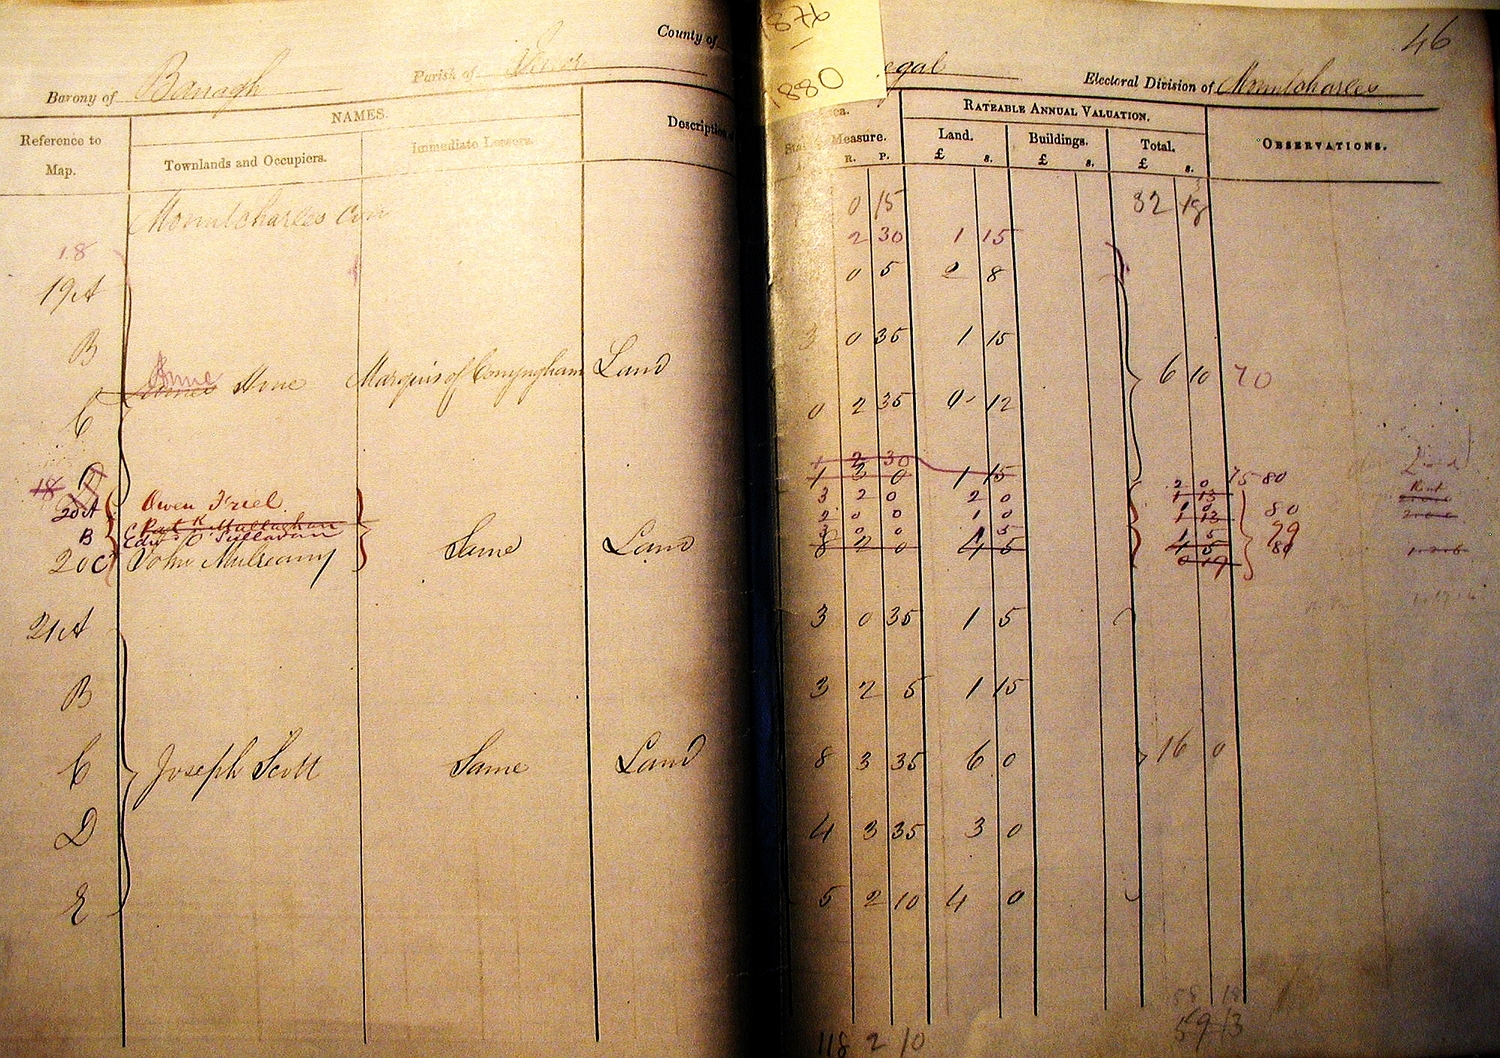 1876
1880
46
County of egal
Barony of Banagh Parish of Inver Electoral Division of Mountcharles
Reference to Map. NAMES. Description RATEABLE ANNUAL VALUATION. OBSERVATIONS.
Townlands and Occupiers. Immediate Lessors. Measure. Land. Buildings. Total.
R. P. £ s. £ s. £ s.
Mountcharles Con 0 15 32
18 2 30 1 15
19A 0 5 8
B 3 0 35 1 15
Anne Marquis of Conyngham Land 6 10 70
C 0 2 35 0 12
D 1 2 30
18 1 3 0 1 15
20A Owen Friel 3 2 0 2 0 2 0 75 80
2 0 0 1 0 80
B Edwd O'Sullavan 79
20C John Mulreany Same Land 8 2 0 4 5 4 5 80
0 19
21A 3 0 35 1 5
B 3 2 5 1 15
C Joseph Scott Same Land 8 3 35 6 0 16 0
D 4 3 35 3 0
E 5 2 10 4 0
58 18
118 2 10 59 13